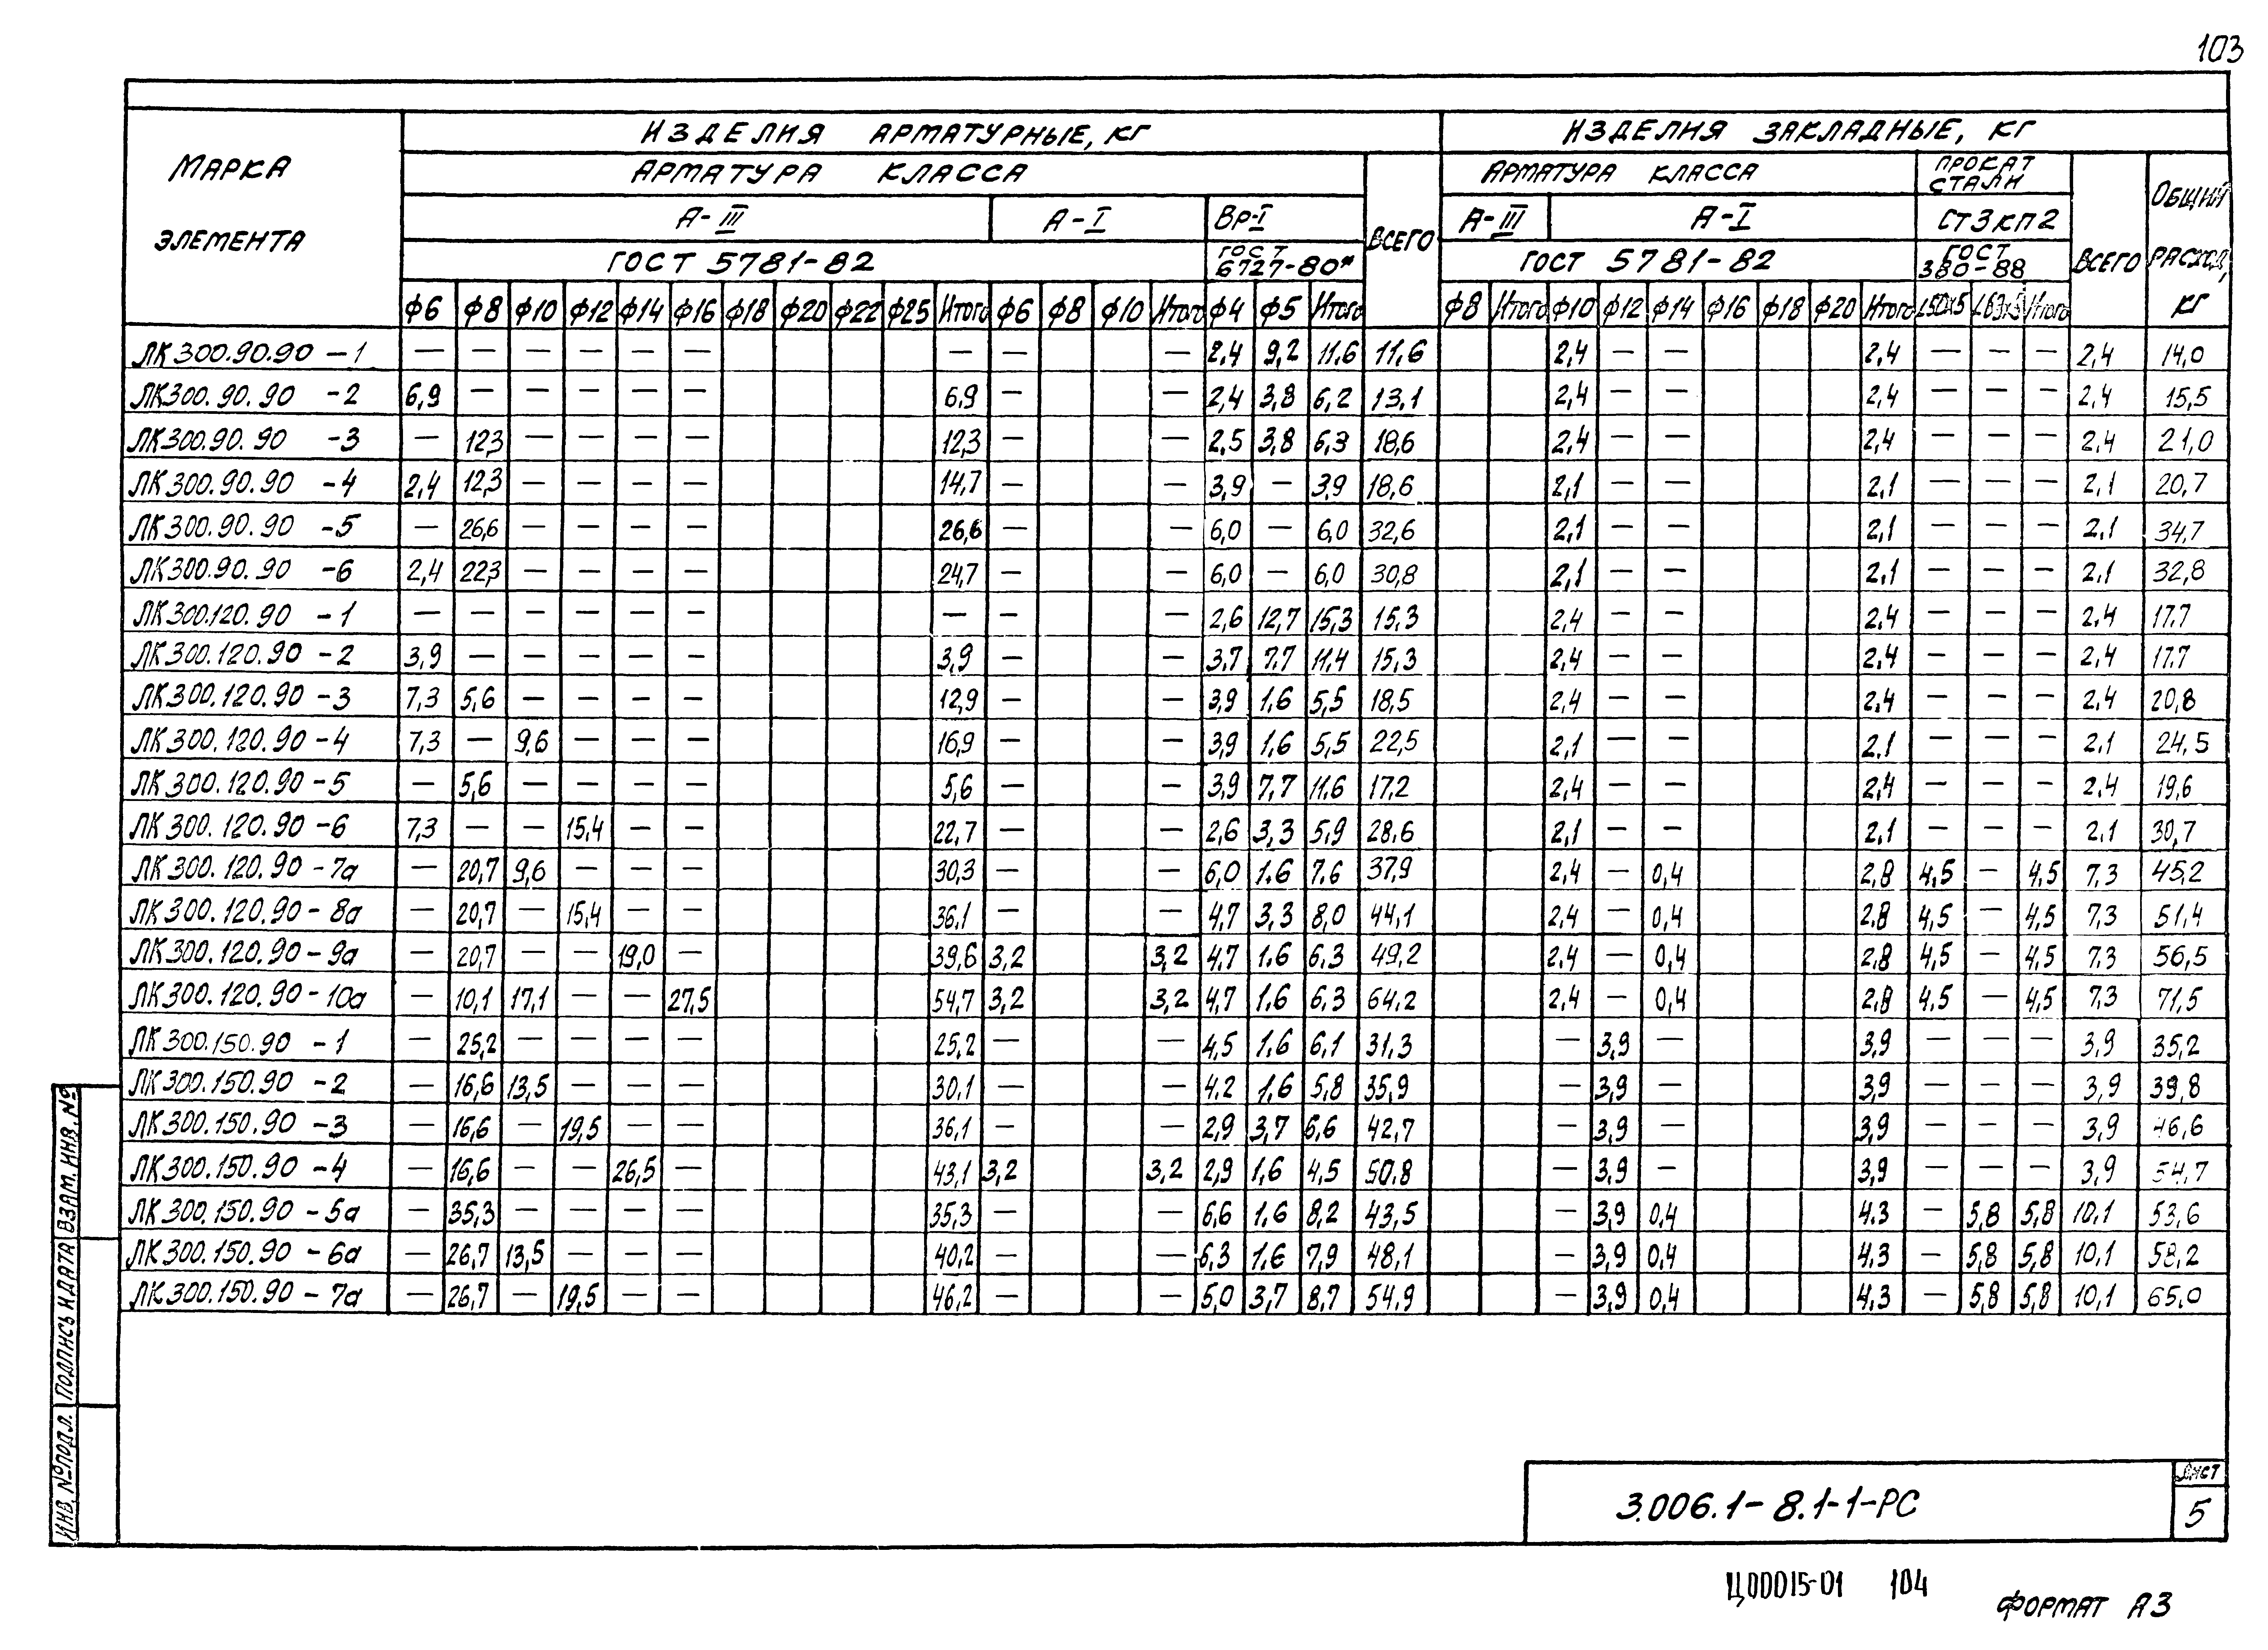 103
МАРКА ЭЛЕМЕНТА
ИЗДЕЛИЯ АРМАТУРНЫЕ, КГ
ИЗДЕЛИЯ ЗАКЛАДНЫЕ, КГ
АРМАТУРА КЛАССА
ВСЕГО
АРМАТУРА КЛАССА
ПРОКАТ СТАЛИ
ВСЕГО
ОБЩИЙ РАСХОД, КГ
А-III А-I Вр-I А-III А-I СТ3КП2
ГОСТ 5781-82 ГОСТ 6727-80* ГОСТ 5781-82 ГОСТ 380-88
ф6 ф8 ф10 ф12 ф14 ф16 ф18 ф20 ф22 ф25 Итого ф6 ф8 ф10 Итого ф4 ф5 Итого ф8 Итого ф10 ф12 ф14 ф16 ф18 ф20 Итого L50х5 L63х5 Итого
ЛК300.90.90 -1 — — — — — — — — — 2,4 9,2 11,6 11,6 2,4 — — 2,4 — — — 2,4 14,0
ЛК300.90.90 -2 6,9 — — — — — 6,9 — — 2,4 3,8 6,2 13,1 2,4 — — 2,4 — — — 2,4 15,5
ЛК300.90.90 -3 — 12,3 — — — — 12,3 — — 2,5 3,8 6,3 18,6 2,4 — — 2,4 — — — 2,4 21,0
ЛК300.90.90 -4 2,4 12,3 — — — — 14,7 — — 3,9 — 3,9 18,6 2,1 — — 2,1 — — — 2,1 20,7
ЛК300.90.90 -5 — 26,6 — — — — 26,6 — — 6,0 — 6,0 32,6 2,1 — — 2,1 — — — 2,1 34,7
ЛК300.90.90 -6 2,4 22,3 — — — — 24,7 — — 6,0 — 6,0 30,8 2,1 — — 2,1 — — — 2,1 32,8
ЛК300.120.90 -1 — — — — — — — — — 2,6 12,7 15,3 15,3 2,4 — — 2,4 — — — 2,4 17,7
ЛК300.120.90 -2 3,9 — — — — — 3,9 — — 3,7 7,7 11,4 15,3 2,4 — — 2,4 — — — 2,4 17,7
ЛК300.120.90 -3 7,3 5,6 — — — — 12,9 — — 3,9 1,6 5,5 18,5 2,4 — — 2,4 — — — 2,4 20,8
ЛК300.120.90 -4 7,3 — 9,6 — — — 16,9 — — 3,9 1,6 5,5 22,5 2,1 — — 2,1 — — — 2,1 24,5
ЛК300.120.90 -5 — 5,6 — — — — 5,6 — — 3,9 7,7 11,6 17,2 2,4 — — 2,4 — — — 2,4 19,6
ЛК300.120.90 -6 7,3 — — 15,4 — — 22,7 — — 2,6 3,3 5,9 28,6 2,1 — — 2,1 — — — 2,1 30,7
ЛК300.120.90 -7а — 20,7 9,6 — — — 30,3 — — 6,0 1,6 7,6 37,9 2,4 — 0,4 2,8 4,5 — 4,5 7,3 45,2
ЛК300.120.90 -8а — 20,7 — 15,4 — — 36,1 — — 4,7 3,3 8,0 44,1 2,4 — 0,4 2,8 4,5 — 4,5 7,3 51,4
ЛК300.120.90 -9а — 20,7 — — 19,0 — 39,6 3,2 3,2 4,7 1,6 6,3 49,2 2,4 — 0,4 2,8 4,5 — 4,5 7,3 56,5
ЛК300.120.90 -10а — 10,1 17,1 — — 27,5 54,7 3,2 3,2 4,7 1,6 6,3 64,2 2,4 — 0,4 2,8 4,5 — 4,5 7,3 71,5
ЛК300.150.90 -1 — 25,2 — — — — 25,2 — — 4,5 1,6 6,1 31,3 — 3,9 — 3,9 — — — 3,9 35,2
ЛК300.150.90 -2 — 16,6 13,5 — — — 30,1 — — 4,2 1,6 5,8 35,9 — 3,9 — 3,9 — — — 3,9 39,8
ЛК300.150.90 -3 — 16,6 — 19,5 — — 36,1 — — 2,9 3,7 6,6 42,7 — 3,9 — 3,9 — — — 3,9 46,6
ЛК300.150.90 -4 — 16,6 — — 26,5 — 43,1 3,2 3,2 2,9 1,6 4,5 50,8 — 3,9 — 3,9 — — — 3,9 54,7
ЛК300.150.90 -5а — 35,3 — — — — 35,3 — — 6,6 1,6 8,2 43,5 — 3,9 0,4 4,3 — 5,8 5,8 10,1 53,6
ЛК300.150.90 -6а — 26,7 13,5 — — — 40,2 — — 6,3 1,6 7,9 48,1 — 3,9 0,4 4,3 — 5,8 5,8 10,1 58,2
ЛК300.150.90 -7а — 26,7 — 19,5 — — 46,2 — — 5,0 3,7 8,7 54,9 — 3,9 0,4 4,3 — 5,8 5,8 10,1 65,0
ВЗАМ. ИНВ. №
ПОДПИСЬ И ДАТА
ИНВ. № ПОДЛ.
3.006.1-8.1-1-РС
ЛИСТ
5
Ц00015-01 104
ФОРМАТ А3